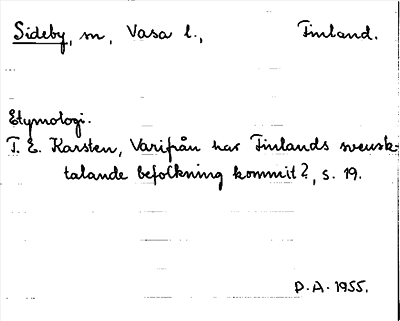 Sideby, m, Vasa l., Finland.
Etymologi.
T. E. Karsten, Varifrån har Finlands svensk-
talande befolkning kommit?, s. 19.
D.A. 1955.